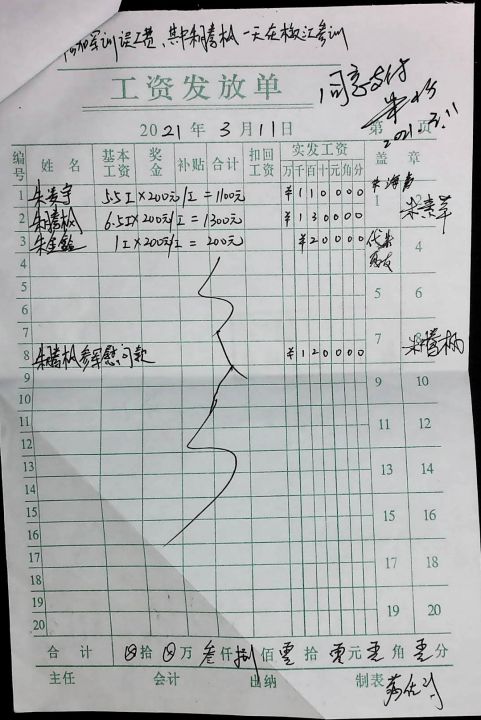 参加军训误工费,其中朱腾枫一天在椒江参训
工资发放单
同意支付
2021.3.11
2021年3月11日 第 页
编号 姓名 基本工资 奖金 补贴 合计 扣回工资 实发工资 盖章
万 千 百 十 元 角 分
1 5.5工×200元/工=1100元 ¥110000 1
2 朱腾枫 6.5工×200元/工=1300元 ¥130000
3 1工×200元/工=200元 ¥20000 4
4
5 5 6
6
7 7
8 朱腾枫参军慰问款 ¥120000 朱腾枫
9 9 10
10
11 11 12
12
13 13 14
14
15 15 16
16
17 17 18
18
19 19 20
20
合计 ⊗拾⊗万叁仟捌佰零拾零元零角零分
主任 会计 出纳 制表